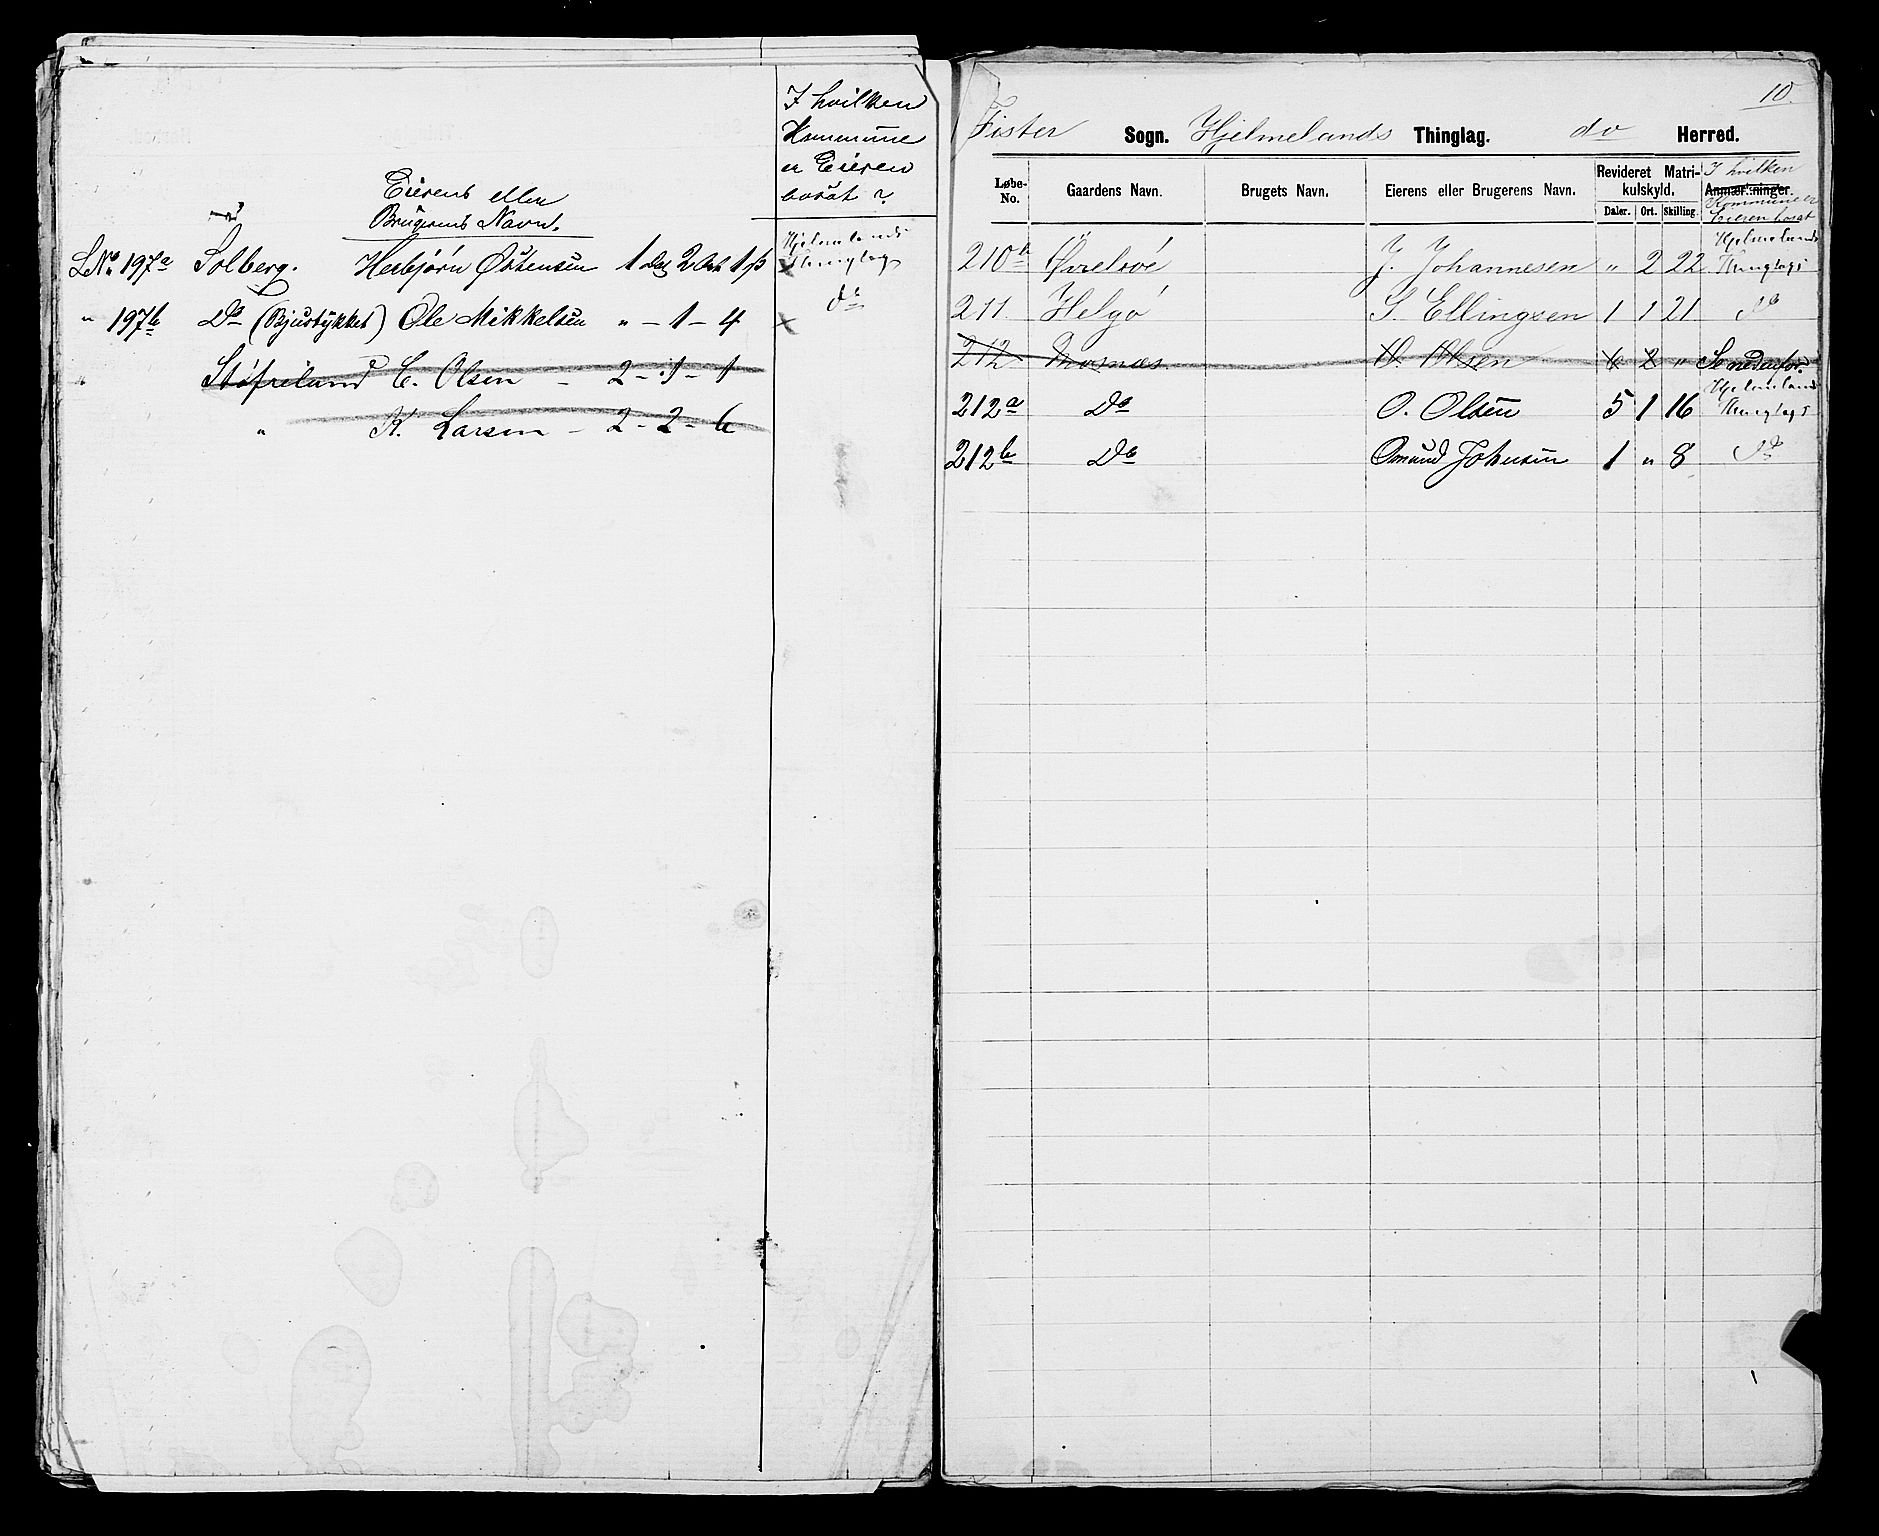 I hvilken
Kommune
er Eieren
bosat?
Eierens eller
Brugerens Navn.
LNo 197a Solberg. Herbjørn Østensen 1 Dal 2 Ort 1 ß Hjelmelands Thinglag
" 197b Do (Bjustykket) Ole Mikkelsen " - 1 - 4 do
" Støfreland C. Olsen - 2 - 1 - 1
" K. Larsen - 2 - 2 - 6
10.
Fister Sogn. Hjelmelands Thinglag. do Herred.
Løbe-No. Gaardens Navn. Brugets Navn. Eierens eller Brugerens Navn. Revideret Matrikulskyld. Daler. Ort. Skilling. Anmærkninger. I hvilken Kommune er Eieren bosat
210b J. Johannesen " 2 22 Hjelmelands Thinglag
211 Helgø S. Ellingsen 1 1 21 do
212 O. Olsen 6 2 "
212a Do O. Olsen 5 1 16 Hjelmelands Thinglag
212b Do Omund Johnsen 1 " 8 do